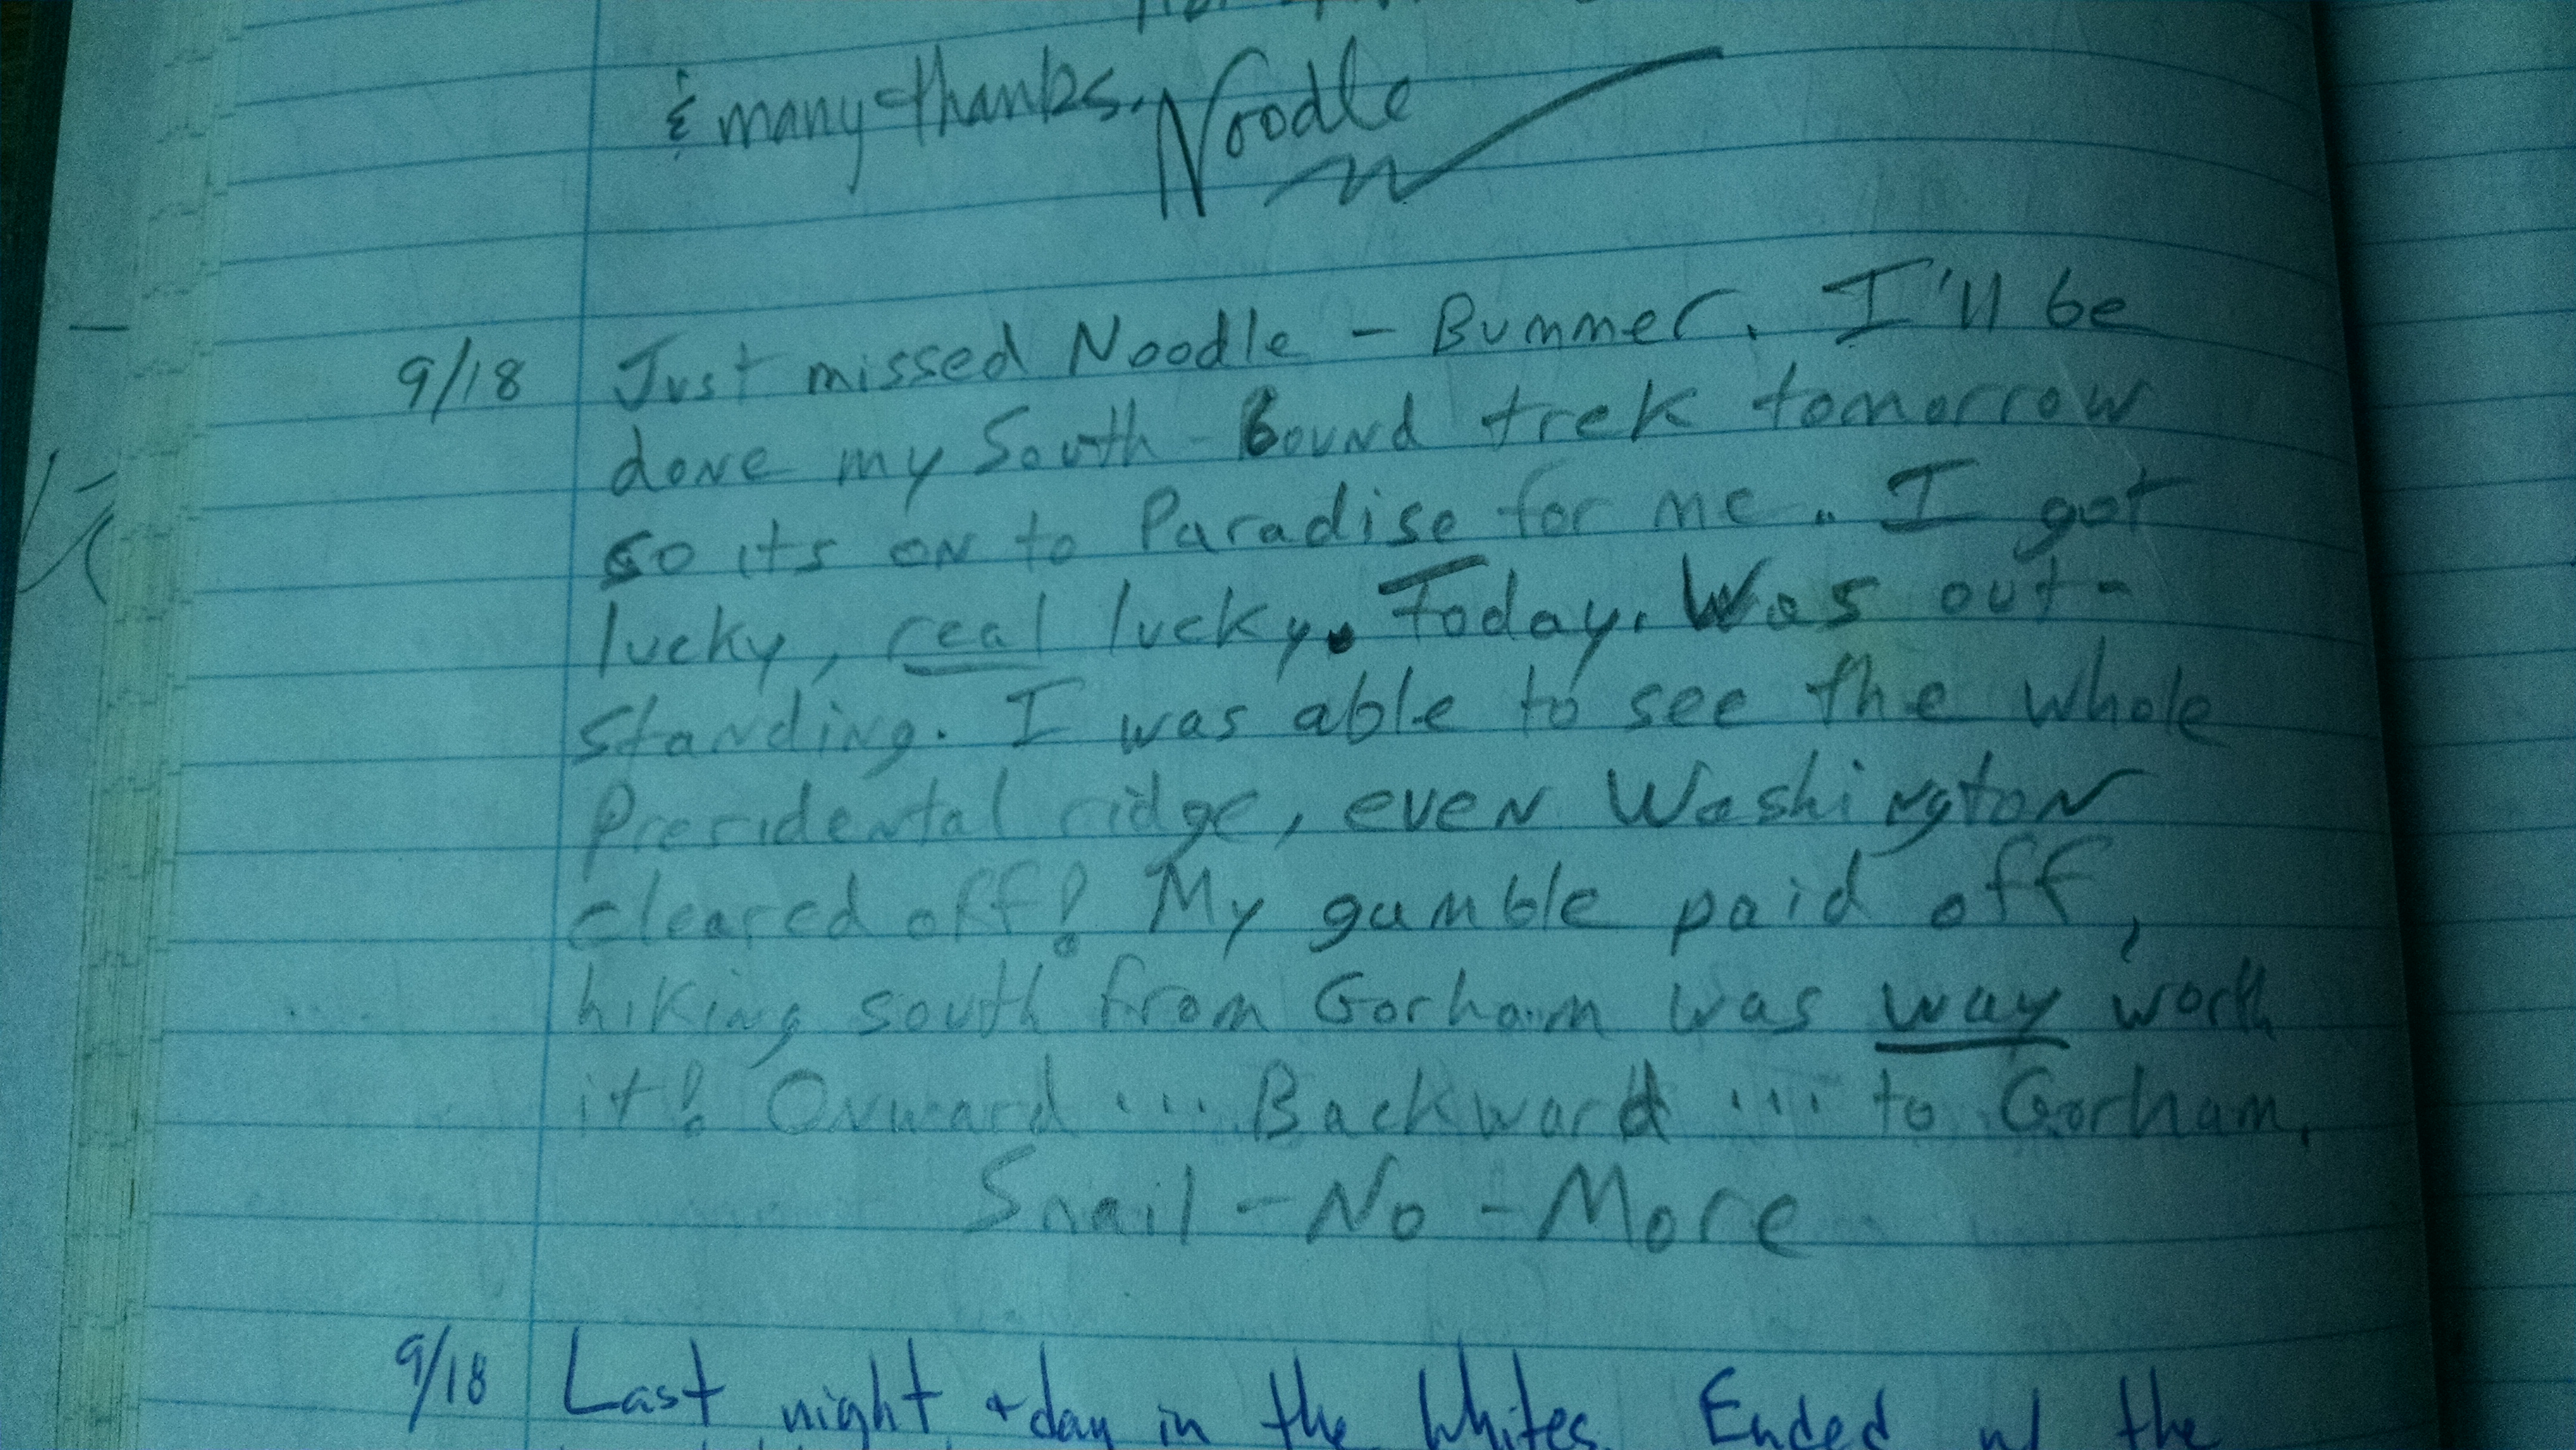 & many thanks. Noodle
9/18 Just missed Noodle - Bummer. I'll be
done my South-bound trek tomorrow
so its on to Paradise for me. I got
lucky, real lucky. Today. Was out-
standing. I was able to see the whole
Presidental ridge, even Washington
cleared off! My gamble paid off,
hiking south from Gorham was way worth
it! Onward ... Backward ... to Gorham.
Snail-No-More
9/18 Last night + day in the Whites. Ended w/ the